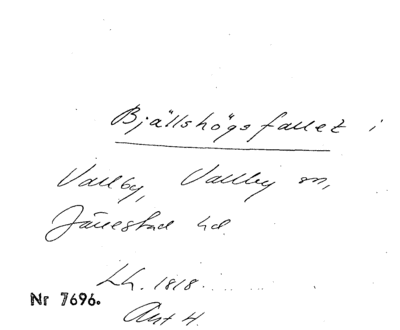 Bjällshögsfallet i
Vallby, Vallby sn,
Järrestad hd.
Lh. 1818.
Nr 7696.
Akt 4.